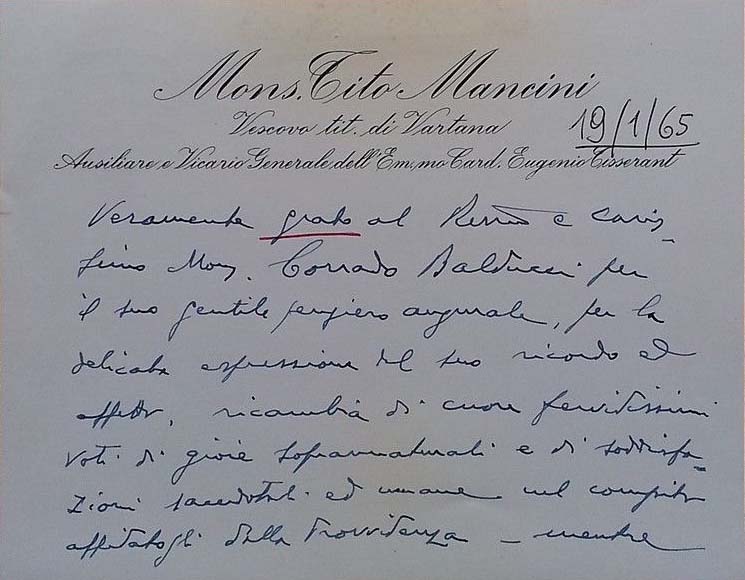 Mons. Tito Mancini
Vescovo tit. di Vartana
19/1/65
Ausiliare e Vicario Generale dell'Em.mo Card. Eugenio Tisserant
Veramente grato al Rev.mo e caris-
simo Mons. Corrado Balducci per
il suo gentile pensiero augurale, per la
delicata espressione del suo ricordo ed
affetto, ricambia di cuore fervidissimi
voti di gioie soprannaturali e di soddisfa-
zioni sacerdotali ed umane nel compito
affidatogli dalla Provvidenza - mentre